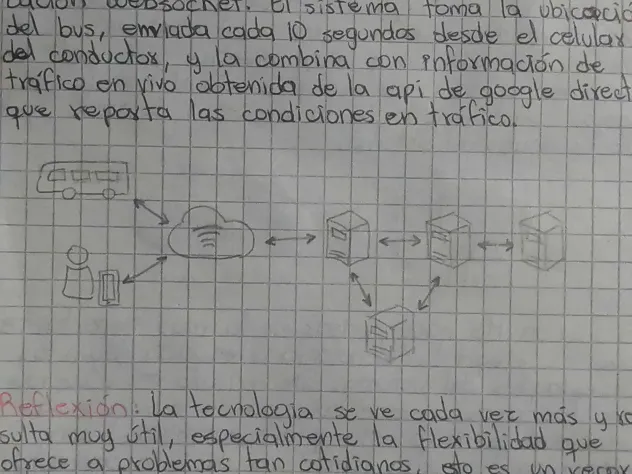 websocket. El sistema toma la ubicació
del bus, enviada cada 10 segundos desde el celular
del conductor, y la combina con información de
tráfico en vivo obtenida de la api de google direct
que reporta las condiciones en tráfico.
Reflexión: La tecnología se ve cada vez más y re
sulta muy útil, especialmente la flexibilidad que
ofrece a problemas tan cotidianos, esto es un